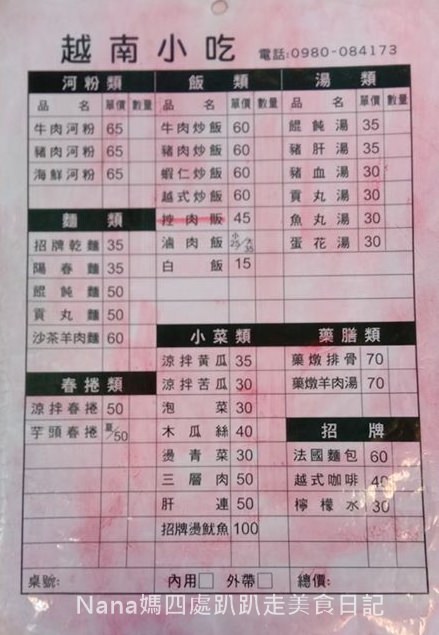 越南小吃 電話:0980-084173
河粉類
品名 單價 數量
牛肉河粉 65
豬肉河粉 65
海鮮河粉 65
麵類
招牌乾麵 35
陽春麵 35
餛飩麵 50
貢丸麵 50
沙茶羊肉麵 60
春捲類
涼拌春捲 50
芋頭春捲 /50
飯類
品名 單價 數量
牛肉炒飯 60
豬肉炒飯 60
蝦仁炒飯 60
越式炒飯 60
控肉飯 45
滷肉飯 小25/大35
白飯 15
小菜類
涼拌黃瓜 35
涼拌苦瓜 30
泡菜 30
木瓜絲 40
燙青菜 30
三層肉 50
肝連 50
招牌燙魷魚 100
湯類
品名 單價 數量
餛飩湯 35
豬肝湯 35
豬血湯 30
貢丸湯 30
魚丸湯 30
蛋花湯 30
藥膳類
藥燉排骨 70
藥燉羊肉湯 70
招牌
法國麵包 60
越式咖啡 40
檸檬水 30
桌號: 內用□ 外帶□ 總價:
Nana媽四處趴趴走美食日記